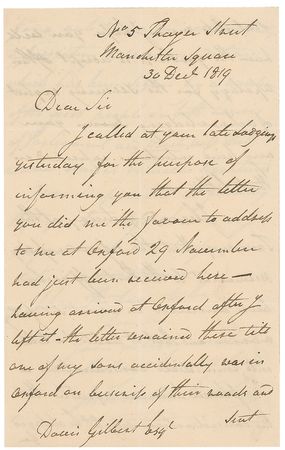 No 5 Thayer Street
Manchester Square
30 Decr 1819
Dear Sir
I called at your late Lodgings
yesterday for the purpose of
informing you that the letter
you did me the favour to address
to me at Oxford 29 November
had just been received here —
having arrived at Oxford after I
left it - the letter remained there till
one of my sons accidentally was in
Oxford on business of their roads and
sent
Davis Gilbert Esqr